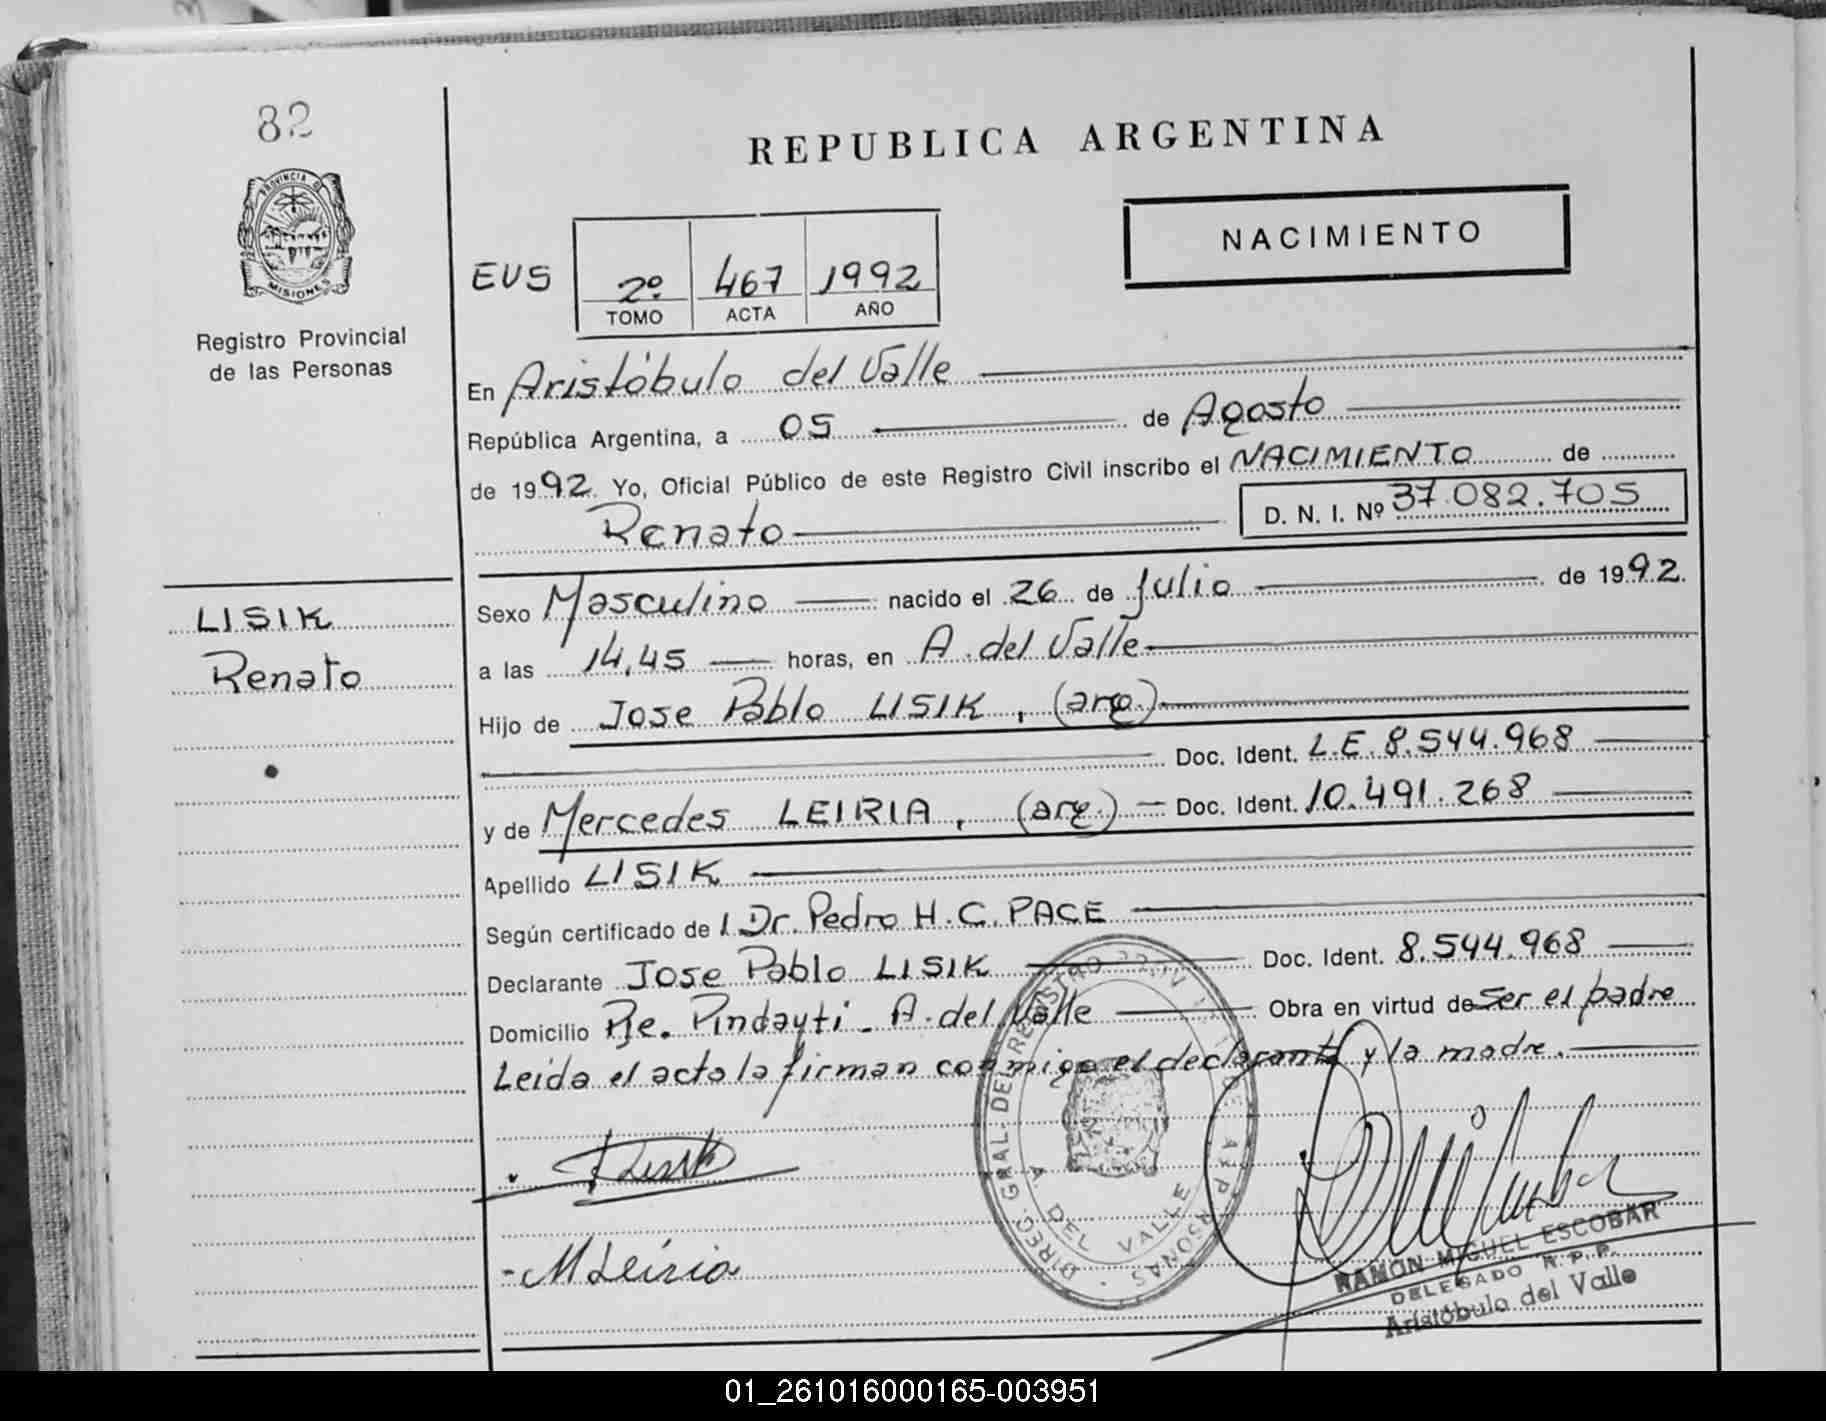 82
PROVINCIA D
MISIONES
Registro Provincial
de las Personas
LISIK
Renato
REPUBLICA ARGENTINA
NACIMIENTO
EUS 2º 467 1992
TOMO ACTA AÑO
En Aristóbulo del Valle
República Argentina, a 05 de Agosto
de 1992. Yo, Oficial Público de este Registro Civil inscribo el NACIMIENTO de
Renato D. N. I. Nº 37.082.705
Sexo Masculino nacido el 26 de Julio de 1992.
a las 14,45 horas, en A. del Valle
Hijo de Jose Pablo LISIK, (arg.)
Doc. Ident. L.E. 8.544.968
y de Mercedes LEIRIA, (arg.) Doc. Ident. 10.491.268
Apellido LISIK
Según certificado de l Dr. Pedro H. C. PACE
Declarante Jose Pablo LISIK Doc. Ident. 8.544.968
Domicilio Pje. Pindayti - A. del Valle Obra en virtud de Ser el padre
Leida el acta la firman conmigo el declarante y la madre.
DIREC. GRAL. DEL REGISTRO PROV. DE LAS PERSONAS
A. DEL VALLE
- M Leiria
RAMON MIGUEL ESCOBAR
DELEGADO R.P.P.
Aristóbulo del Valle
01_261016000165-003951